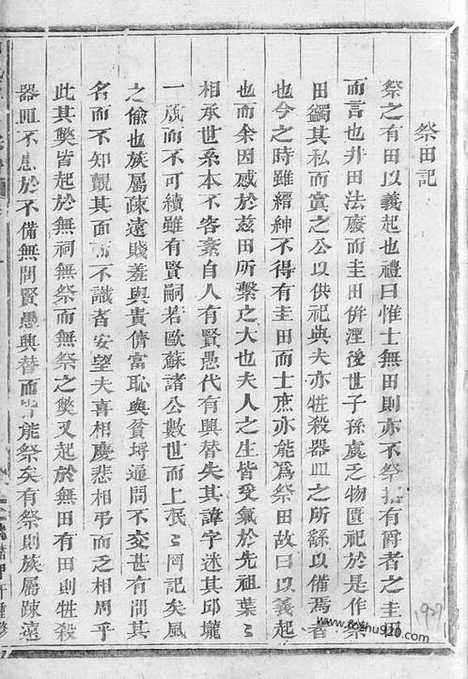 祭田記
祭之有田以義起也禮曰惟士無田則亦不祭指有爵者之圭田
而言也井田法廢而圭田併湮後世子孫虞乏物匱祀於是作祭
田蠲其私而實之公以供祀典夫亦牲殺器皿之所繇以備焉者
也今之時雖縉紳不得有圭田而士庶亦能爲祭田故曰以義起
也而余因感於茲田所繫之大也夫人之生皆受氣於先祖葉〻
相承世系本不容紊自人有賢愚代有興替失其諱字迷其邱壠
一蹶而不可續雖有賢嗣若歐蘇諸公數世而上泯〻罔記矣風
之偷也族屬疎遠賤羞與貴儕富恥與貧埒通問不交甚有問其
名而不知覿其面而不識者安望夫喜相慶悲相弔而之相周乎
此其獘皆起於無祠無祭而無祭之獘又起於無田有田則牲殺
器皿不患於不備無問賢愚興替而皆能祭矣有祭則族屬疎遠
197